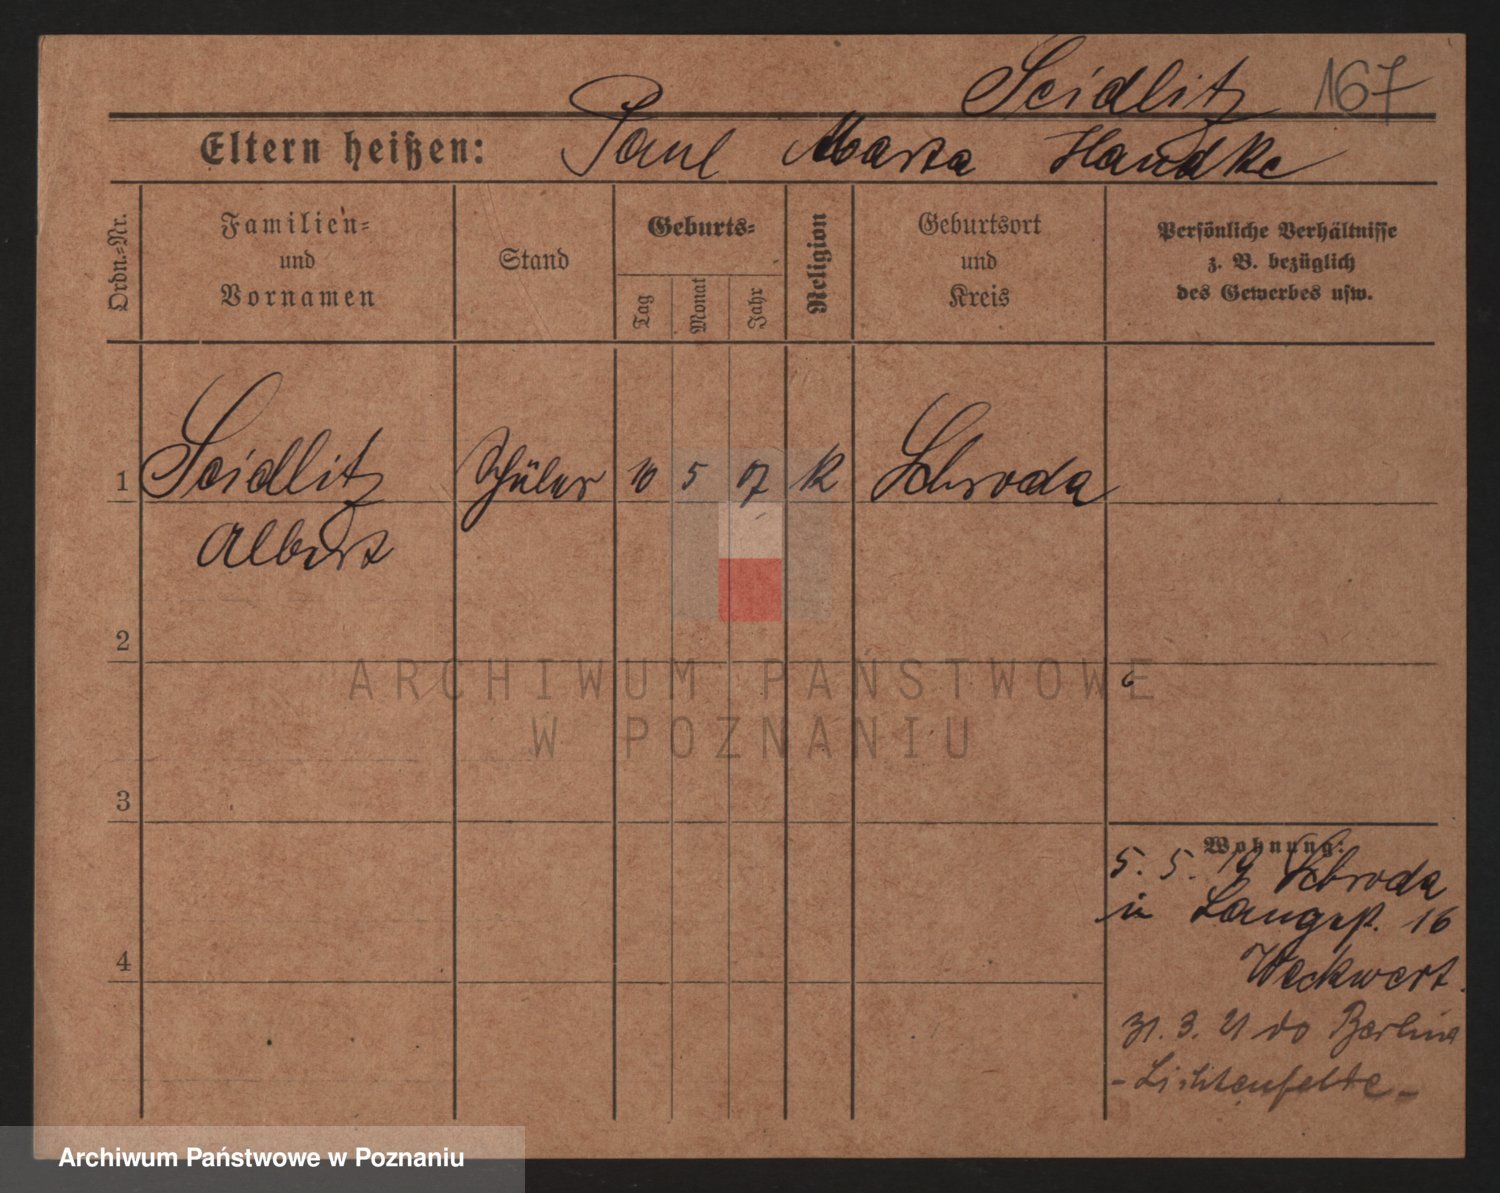 Seidlitz 167
Eltern heißen: Paul Marta Handke
Ordn.-Nr.
Familien-
und
Vornamen
Stand
Geburts-
Tag
Monat
Jahr
Religion
Geburtsort
und
Kreis
Persönliche Verhältnisse
z. B. bezüglich
des Gewerbes usw.
1 Seidlitz Schüler 10 5 07 K Schroda
Albert
2
3
4
Wohnung:
5. 5. 19 Schroda
in Langestr. 16
Weckwert.
31. 3. 21 do Berlina
- Lichtenfelde -
ARCHIWUM PAŃSTWOWE
W POZNANIU
Archiwum Państwowe w Poznaniu